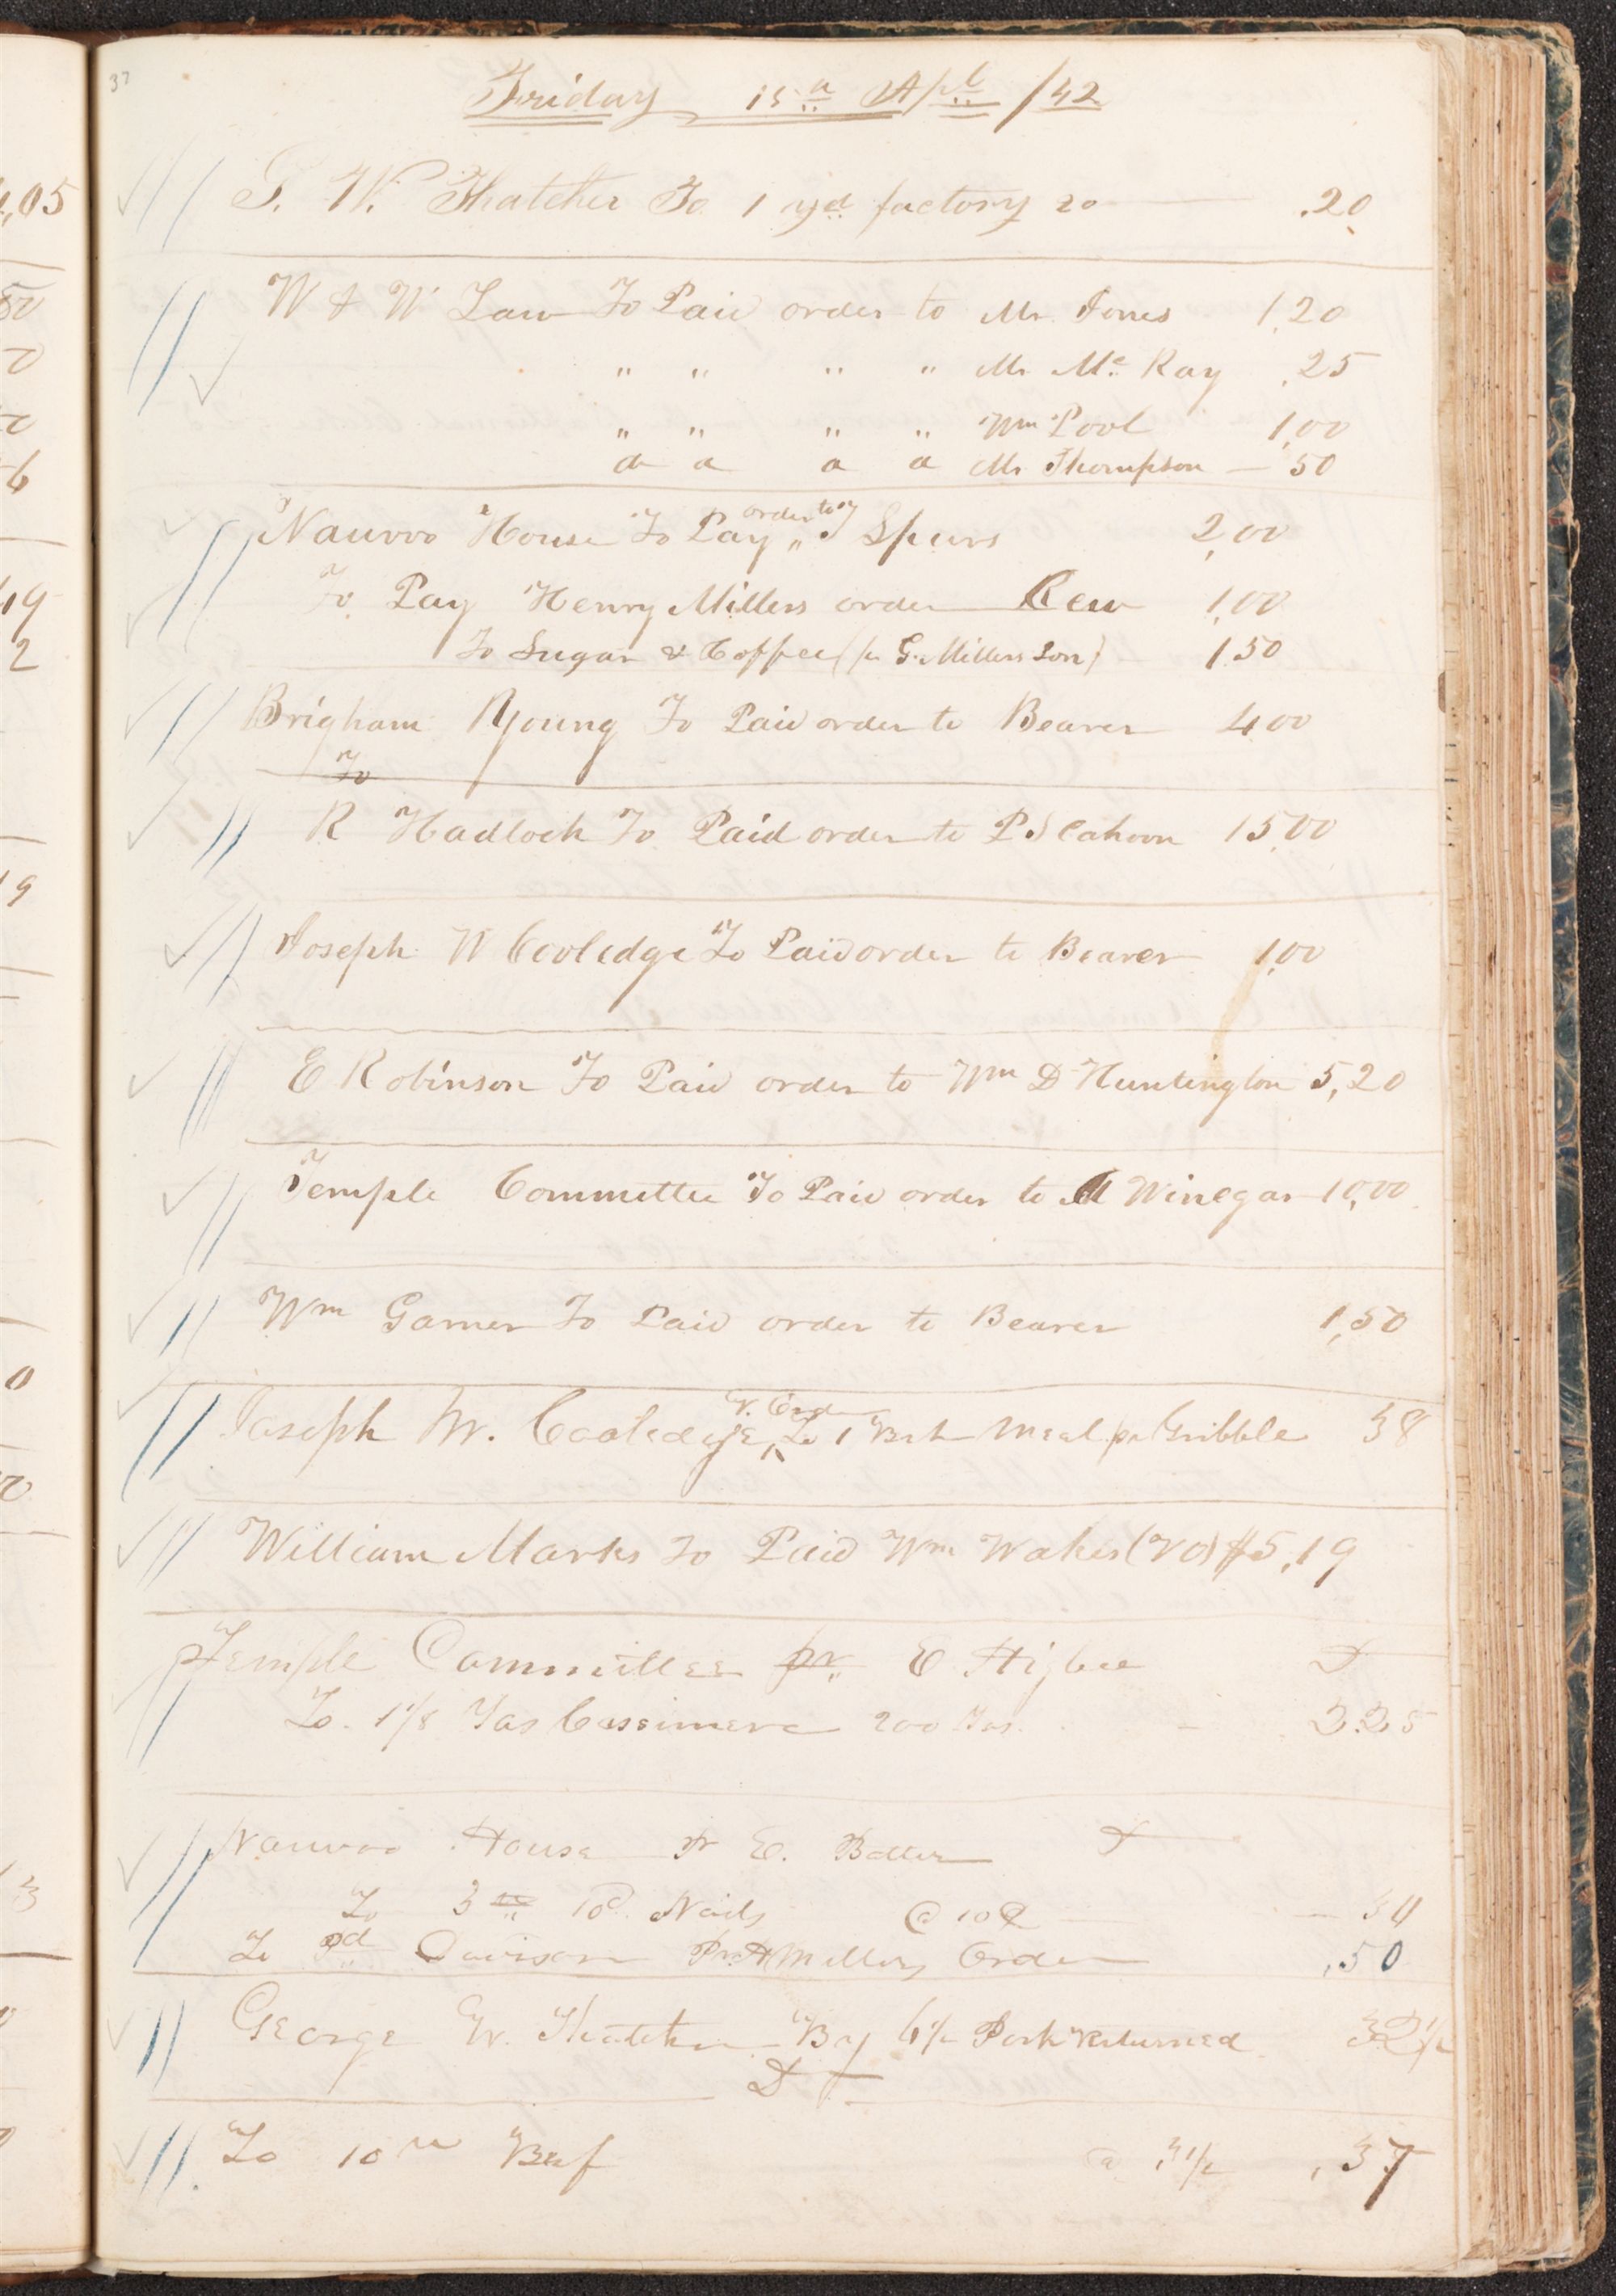 37
Friday 15th Apl /42
G. W. Thatcher To 1 yd factory 20 .20
W & W Law To Paid order to Mr Jones 1,20
" " " " Mr Mc Ray .25
" " " " Wm Pool 1,00
" " " " Mr Thompson 50
Nauvoo House To Pay order to J Spurs 2,00
To Pay Henry Millers order 1,00
To Sugar & Coffee (pr G. Millers Son) 1.50
Brigham Young To Paid order to Bearer 4.00
To
R Hadlock To Paid order to P S Cahoon 15.00
Joseph W Cooledge To Paid order to Bearer 1.00
E Robinson To Paid order to Wm D Huntington 5,20
Temple Committee To Paid order to A Winegar 10,00
Wm Garner To Paid order to Bearer 1,50
Joseph W. Cooledge, W. Order To 1 Bsh Meal pr Gribble 38
William Marks To Paid Wm Wakes (20) $5,19
Temple Committee pr. E Higbee D
To. 1 1/8 Yds Cassimere 200 Yds. 2.25
Nauvoo House pr E. D
To 3 lb 10d Nails @ 10 30
To Pd Davison Pr H Millers Order ,50
George W. Thatcher By 6½ Pork Returned 32½
D
To 10 lb Beef @ ,3½ ,37